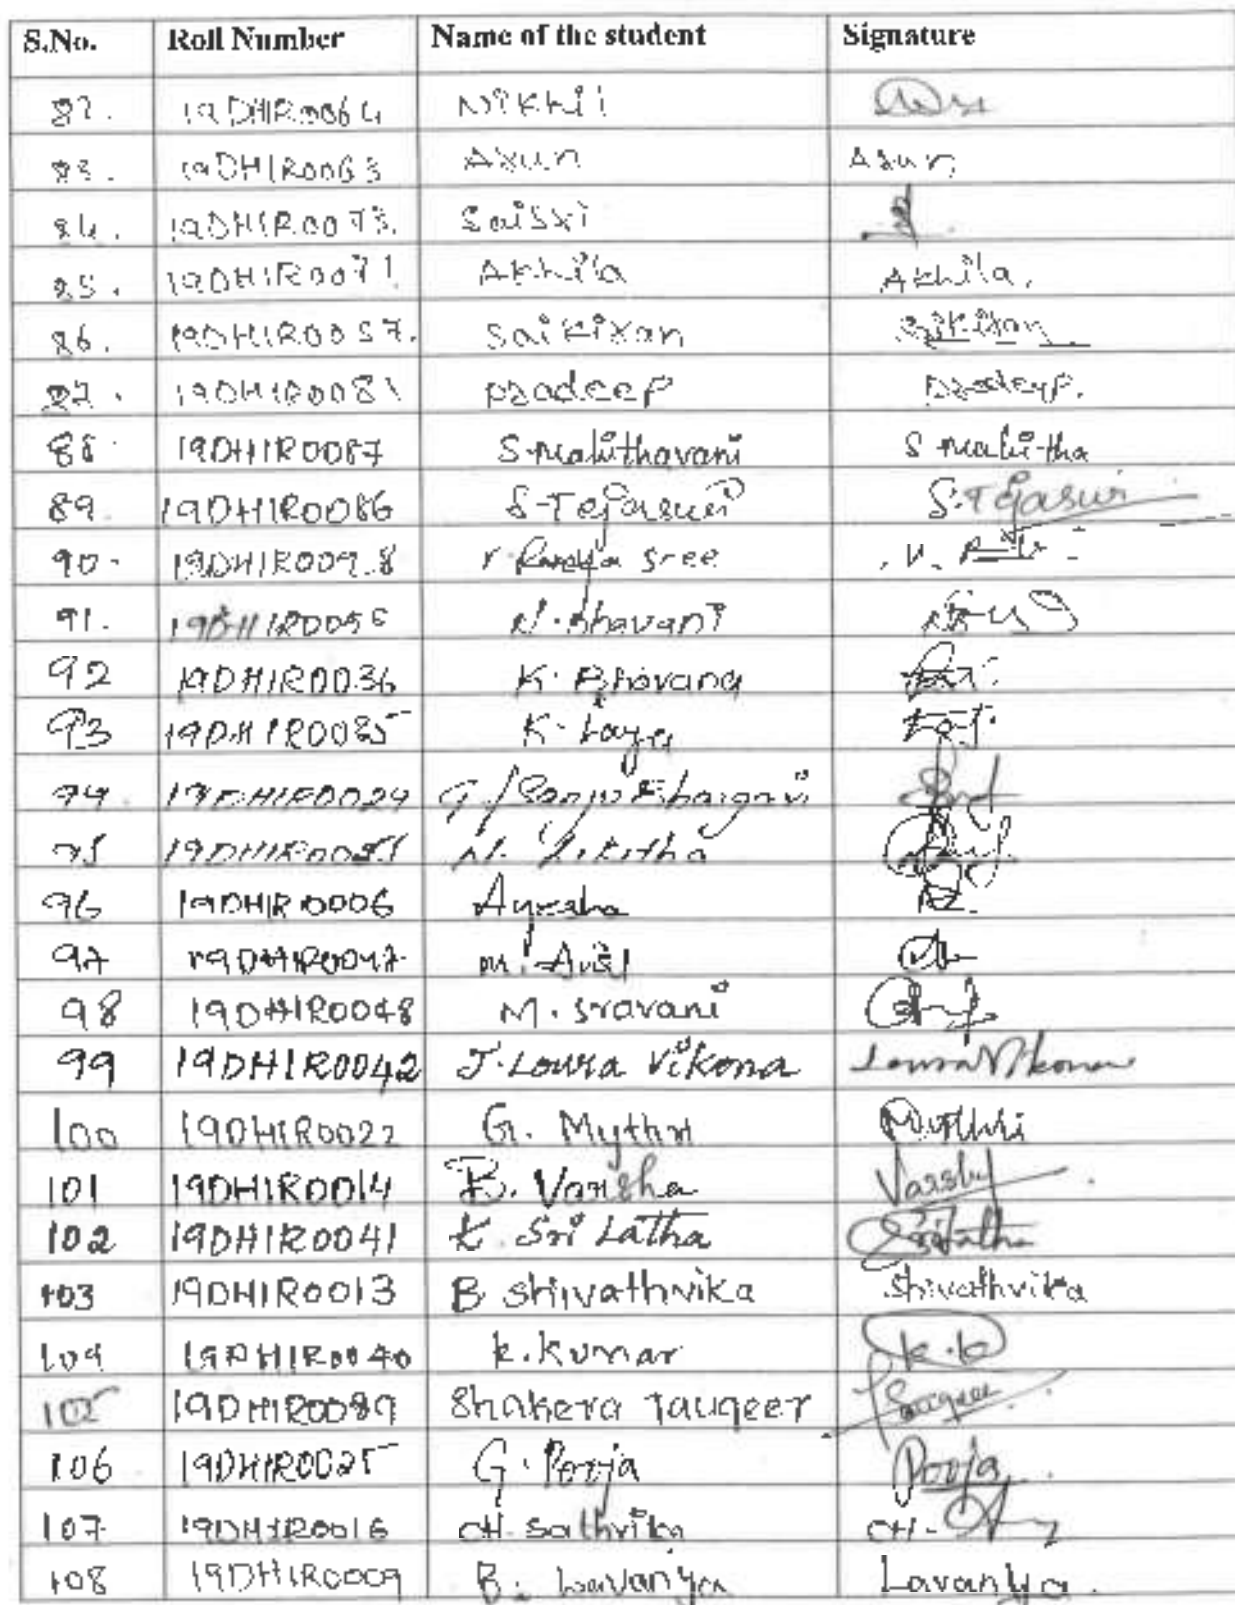 S.No. Roll Number Name of the student Signature
82. 19DH1R0064 Nikhil
83. 19DH1R0063 Arun Arun
84. 19DH1R0073. Saisri
85. 19DH1R0071 Akhila Akhila.
86. 19DH1R0057. Saikiran Saikiran
87. 19DH1R0081 pradeep pradeep.
88. 19DH1R0087 S. Malithavani S Mali-tha
89. 19DH1R0086 S-Tejaswi S.Tejaswi
90. 19DH1R0098 V. Ramya Sree V.
91. 19DH1R0056 N. Bhavani
92 19DH1R0036 K. Bhavana
93 19DH1R0035 K. Laya
94. 19DH1R0029 G.
95 N. Likitha
96 19DH1R0006 Ayesha
97 19DH1R0047 M.
98 19DH1R0048 M. Sravani
99 19DH1R0042 J. Loura Vikona Loura Vikona
100 19DH1R0022 G. Mythri Mythri
101 19DH1R0014 B. Varsha Varsha
102 19DH1R0041 K. Sri Latha Srilatha
103 19DH1R0013 B shivathvika Shivathvika
104 19DH1R0040 k. kumar k.k
105 19DH1R0089 Shakera Tauqeer Tauqeer
106 19DH1R0025 G. Pooja Pooja
107 19DH1R0016 CH. Sathvika CH.
108 19DH1R0009 B. Lavanya Lavanya.